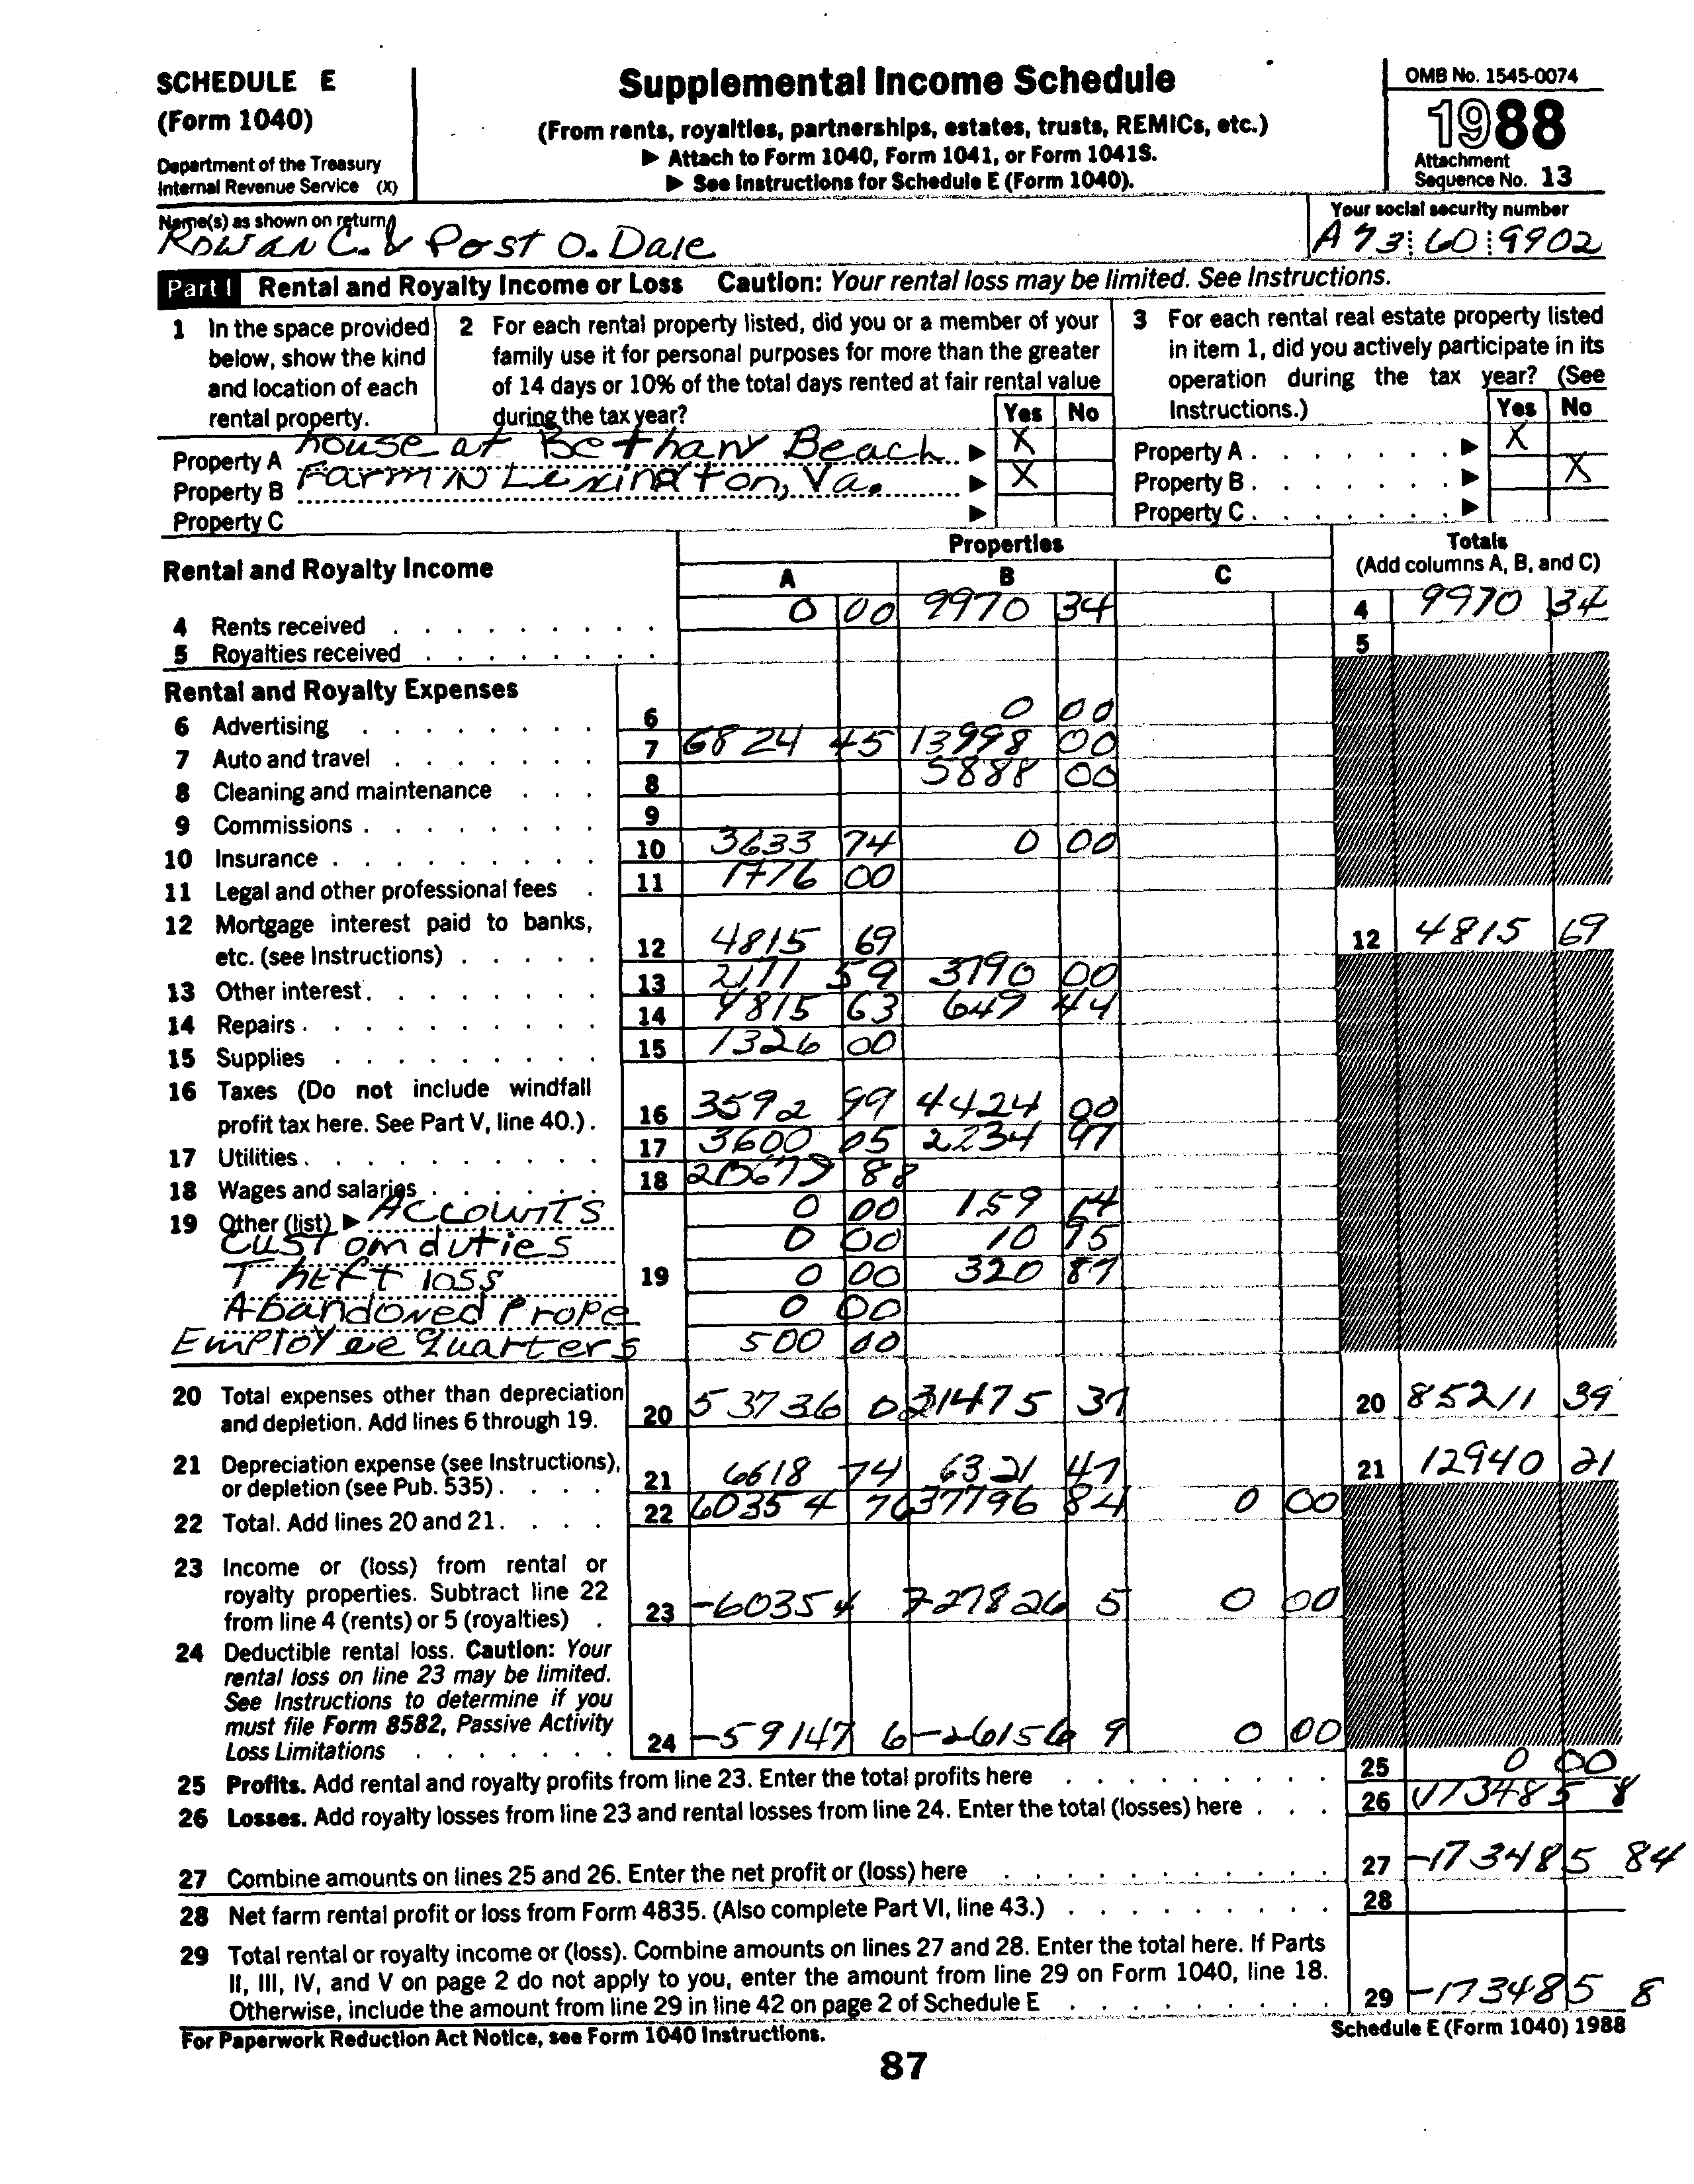 SCHEDULE E
(Form 1040)
Department of the Treasury
Internal Revenue Service (X)
Supplemental Income Schedule
(From rents, royalties, partnerships, estates, trusts, REMICs, etc.)
▶ Attach to Form 1040, Form 1041, or Form 1041S.
▶ See Instructions for Schedule E (Form 1040).
OMB No. 1545-0074
1988
Attachment
Sequence No. 13
Name(s) as shown on return
Rowan C. & Post O. Dale
Your social security number
A73 60 9902
Part I Rental and Royalty Income or Loss Caution: Your rental loss may be limited. See Instructions.
1 In the space provided
below, show the kind
and location of each
rental property.
2 For each rental property listed, did you or a member of your
family use it for personal purposes for more than the greater
of 14 days or 10% of the total days rented at fair rental value
during the tax year?
Yes No
3 For each rental real estate property listed
in item 1, did you actively participate in its
operation during the tax year? (See
Instructions.)
Yes No
Property A house at Bethany Beach ▶ X
Property B Farm N Lexington, Va. ▶ X
Property C ▶
Property A . . . . . . . ▶ X
Property B . . . . . . . ▶ X
Property C . . . . . . . ▶
Rental and Royalty Income
Properties
A B C
Totals
(Add columns A, B, and C)
4 Rents received 0 00 9970 34 4 9970 34
5 Royalties received 5
Rental and Royalty Expenses
6 Advertising 6 0 00
7 Auto and travel 7 6824 45 13998 00
8 Cleaning and maintenance 8 5888 00
9 Commissions 9
10 Insurance 10 3633 74 0 00
11 Legal and other professional fees 11 1776 00
12 Mortgage interest paid to banks,
etc. (see Instructions) 12 4815 69 12 4815 69
13 Other interest 13 2171 59 3790 00
14 Repairs 14 4815 63 649 44
15 Supplies 15 1326 00
16 Taxes (Do not include windfall
profit tax here. See Part V, line 40.) 16 3592 99 4424 00
17 Utilities 17 3600 05 2234 97
18 Wages and salaries 18 20679 88
19 Other (list) ▶ Accounts 0 00 159 14
Custom duties 0 00 10 95
Theft loss 19 0 00 320 87
Abandoned Prope 0 00
Employee Quarters 500 00
20 Total expenses other than depreciation
and depletion. Add lines 6 through 19. 20 53736 0 31475 37 20 85211 39
21 Depreciation expense (see Instructions),
or depletion (see Pub. 535) 21 6618 74 6321 47 21 12940 21
22 Total. Add lines 20 and 21 22 60354 76 37796 84 0 00
23 Income or (loss) from rental or
royalty properties. Subtract line 22
from line 4 (rents) or 5 (royalties) 23 -60354 7 27826 5 0 00
24 Deductible rental loss. Caution: Your
rental loss on line 23 may be limited.
See Instructions to determine if you
must file Form 8582, Passive Activity
Loss Limitations 24 -59147 6 -26156 9 0 00
25 Profits. Add rental and royalty profits from line 23. Enter the total profits here 25 0 00
26 Losses. Add royalty losses from line 23 and rental losses from line 24. Enter the total (losses) here 26 173485 8
27 Combine amounts on lines 25 and 26. Enter the net profit or (loss) here 27 -173485 84
28 Net farm rental profit or loss from Form 4835. (Also complete Part VI, line 43.) 28
29 Total rental or royalty income or (loss). Combine amounts on lines 27 and 28. Enter the total here. If Parts
II, III, IV, and V on page 2 do not apply to you, enter the amount from line 29 on Form 1040, line 18.
Otherwise, include the amount from line 29 in line 42 on page 2 of Schedule E 29 -173485 8
For Paperwork Reduction Act Notice, see Form 1040 Instructions.
Schedule E (Form 1040) 1988
87